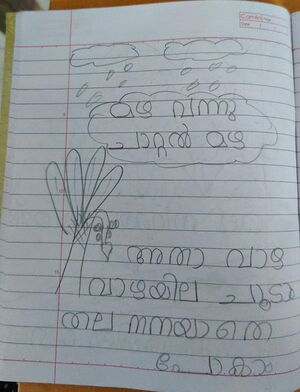 മഴ വന്നു
ചാറ്റൽ മഴ
അതാ വാഴ
വാഴയില ചൂടാം
തല നനയാതെ
പോകാം